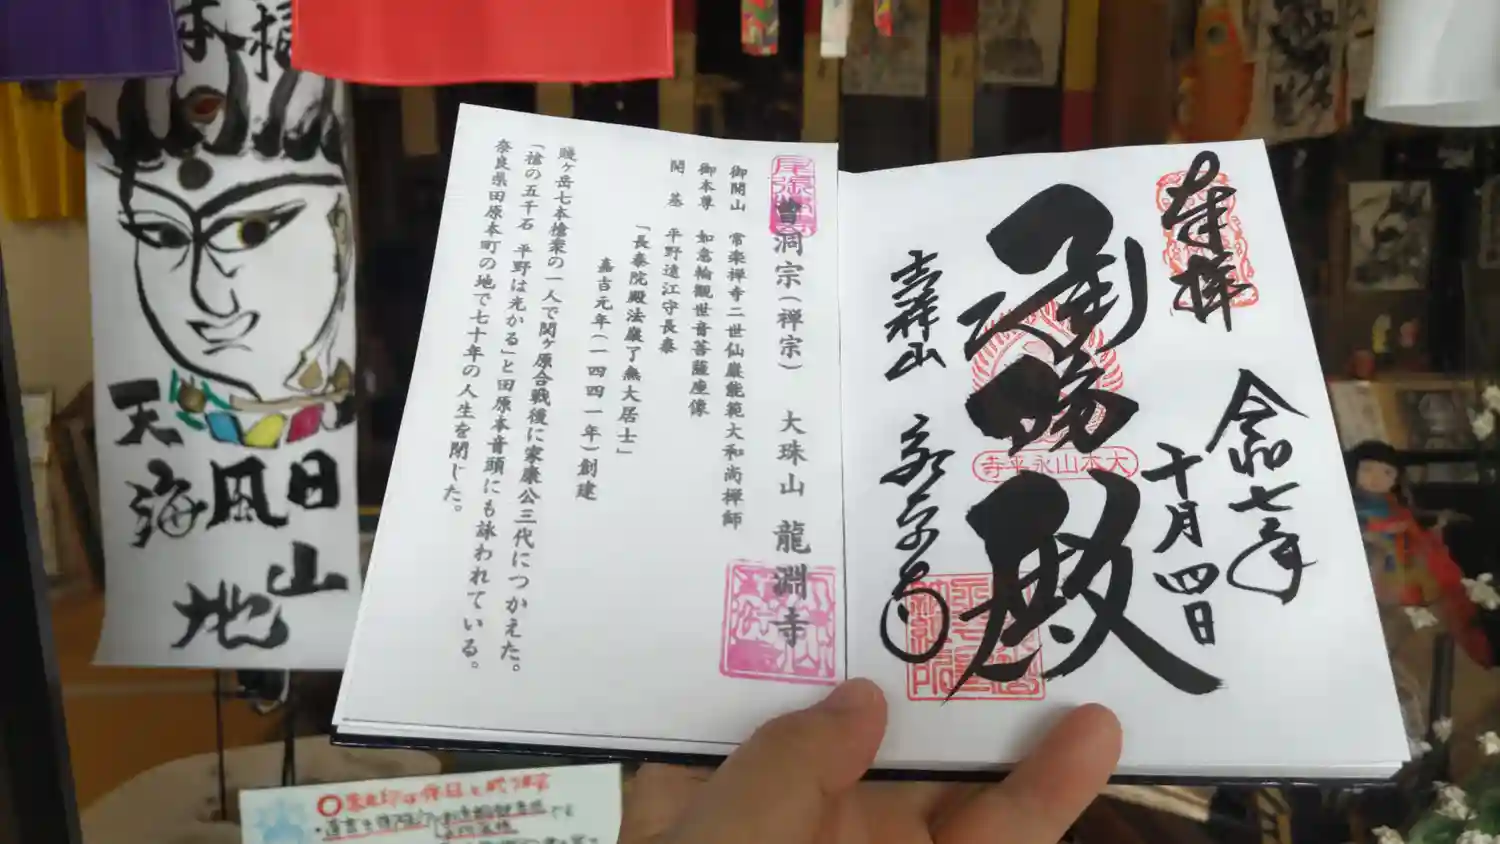 奉拝
令和七年
十月四日
承陽殿
大本山永平寺
吉祥山
永平寺
曹洞宗(禅宗) 大珠山 龍淵寺
御開山 常楽禅寺二世仙巌能範大和尚禅師
御本尊 如意輪観世音菩薩座像
開基 平野遠江守長泰
「長泰院殿法巌了無大居士」
嘉吉元年(一四四一年)創建
賤ヶ岳七本槍衆の一人で関ヶ原合戦後に家康公三代につかえた。
「槍の五千石 平野は光かる」と田原本音頭にも詠われている。
奈良県田原本町の地で七十年の人生を閉じた。
日山
風
天海地